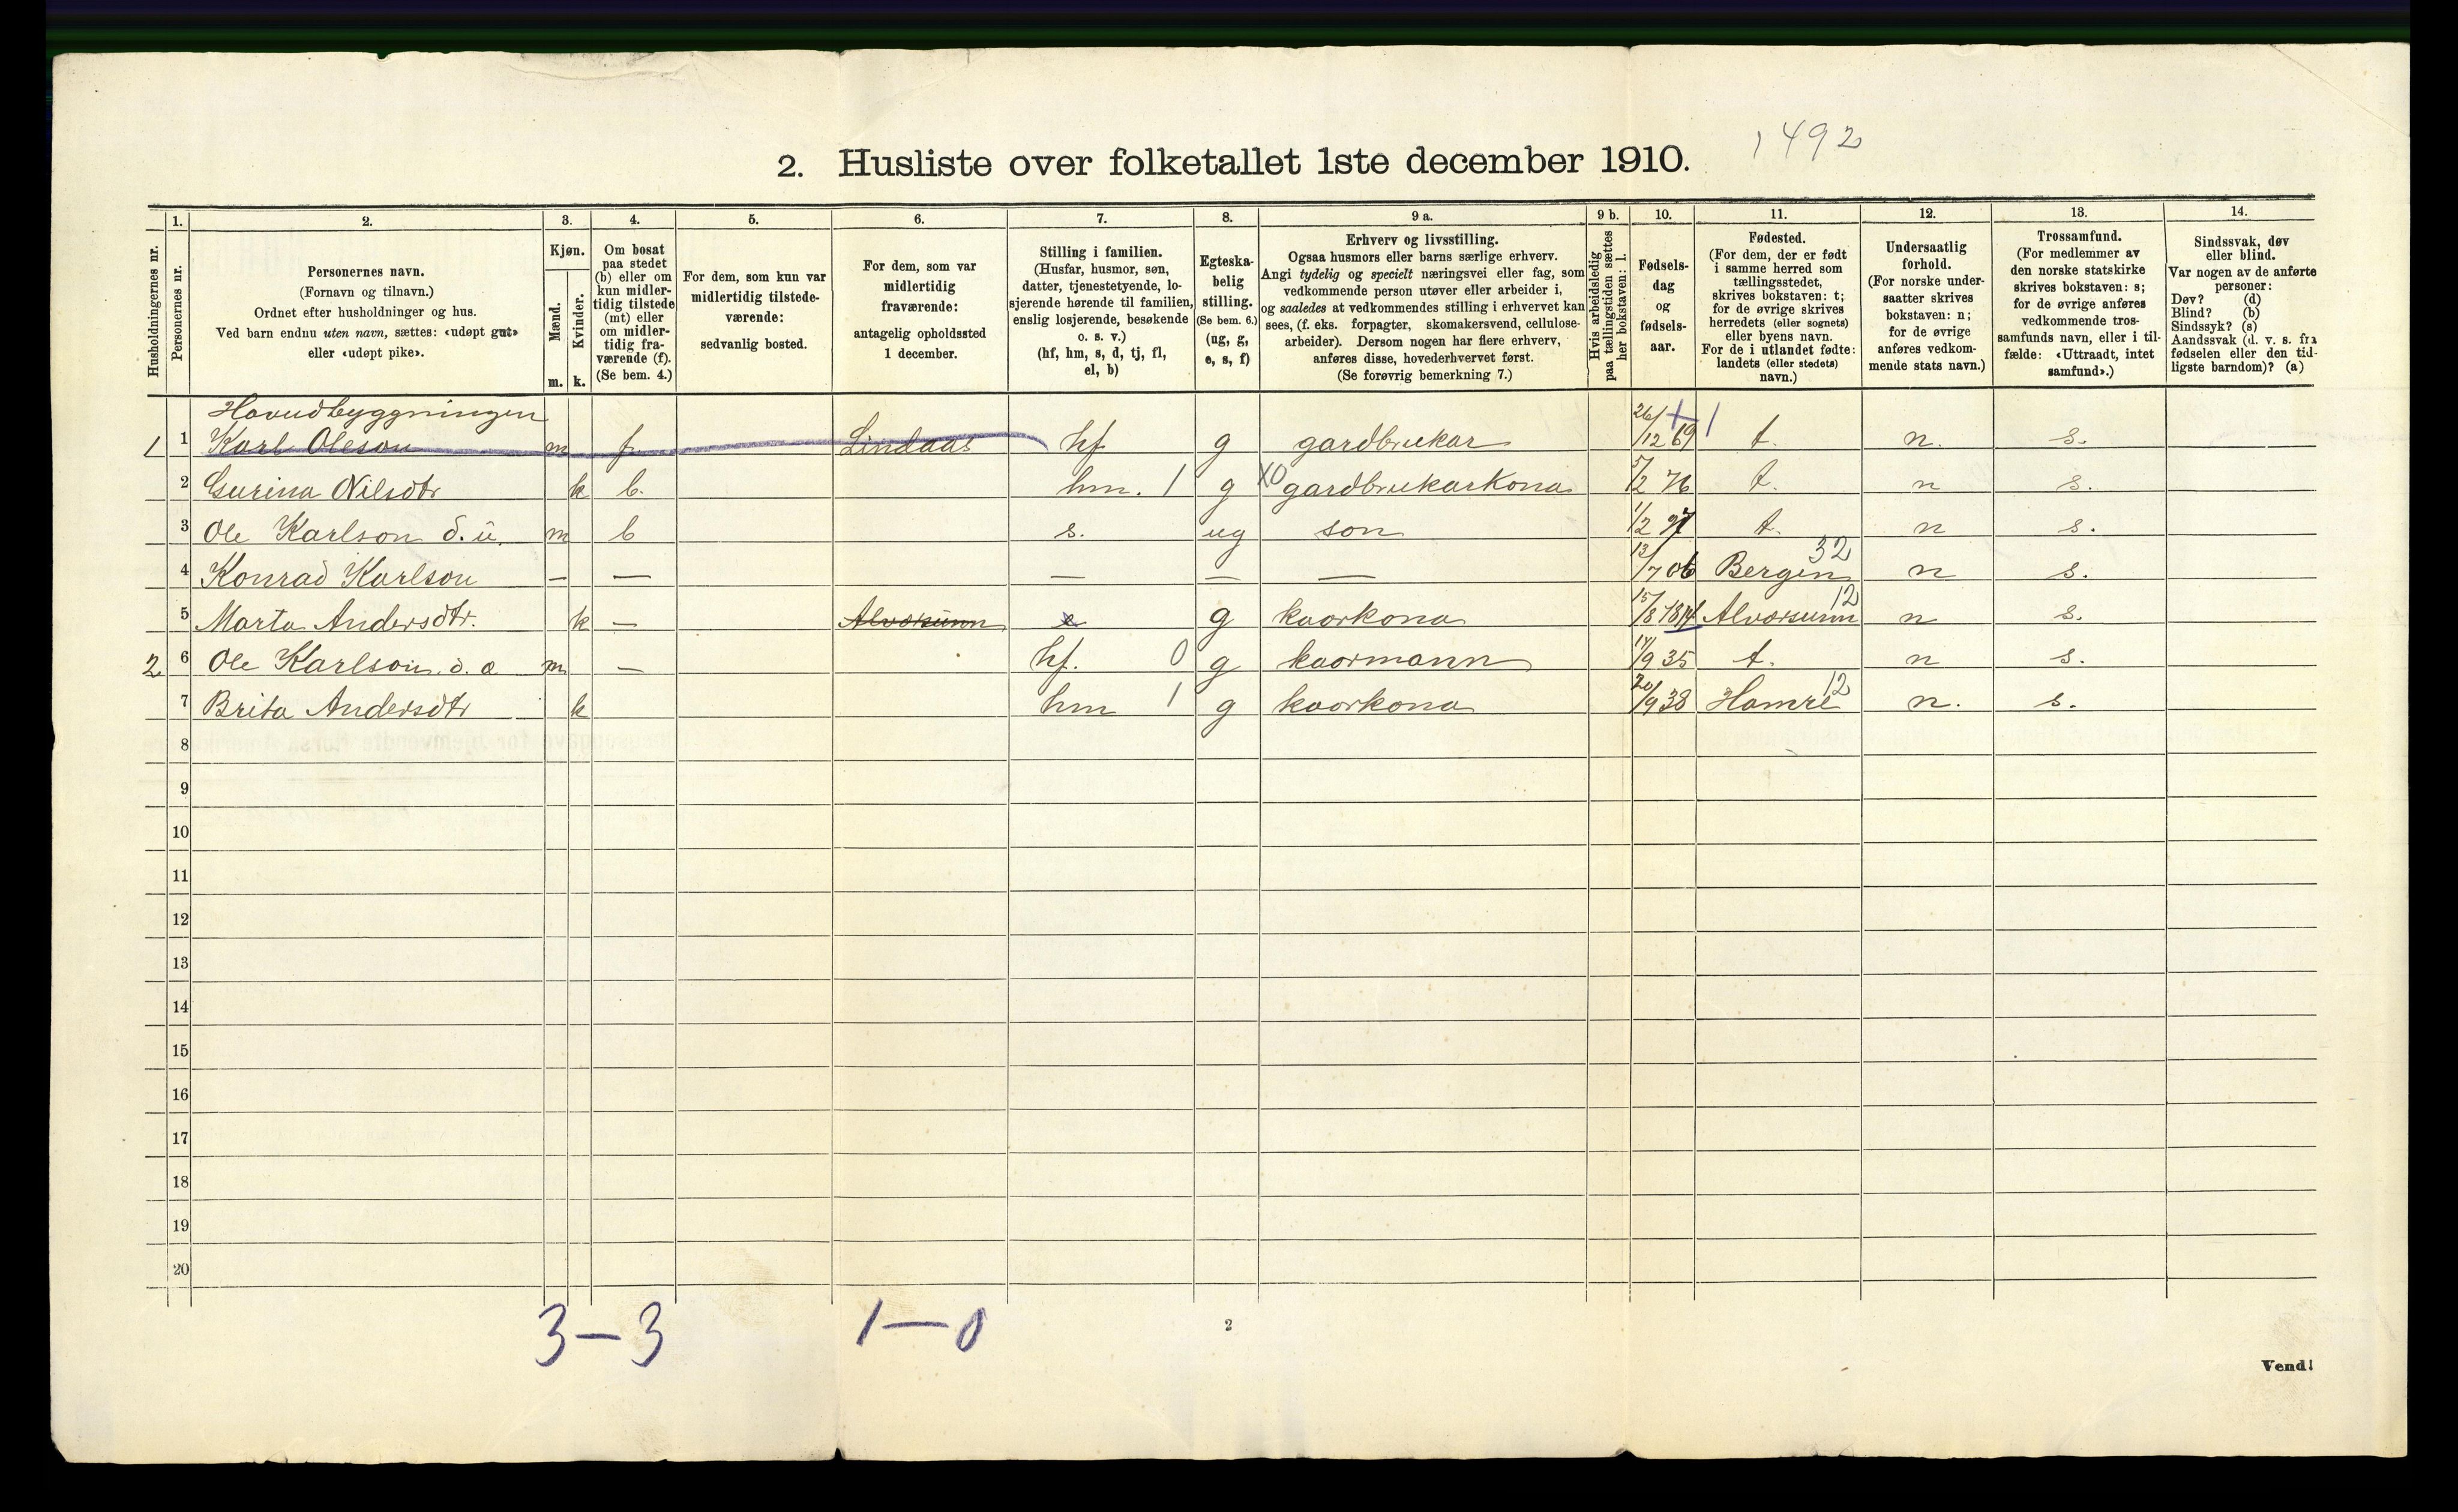 1492
2. Husliste over folketallet 1ste december 1910.
Husholdningernes nr.
1. Personernes nr.
2. Personernes navn.
(Fornavn og tilnavn.)
Ordnet efter husholdninger og hus.
Ved barn endnu uten navn, sættes: «udøpt gut»
eller «udøpt pike».
3. Kjøn.
Mænd. m.
Kvinder. k.
4. Om bosat
paa stedet
(b) eller om
kun midler-
tidig tilstede
(mt) eller
om midler-
tidig fra-
værende (f).
(Se bem. 4.)
5. For dem, som kun var
midlertidig tilstede-
værende:
sedvanlig bosted.
6. For dem, som var
midlertidig
fraværende:
antagelig opholdssted
1 december.
7. Stilling i familien.
(Husfar, husmor, søn,
datter, tjenestetyende, lo-
sjerende hørende til familien,
enslig losjerende, besøkende
o. s. v.)
(hf, hm, s, d, tj, fl,
el, b)
8. Egteska-
belig
stilling.
(Se bem. 6.)
(ug, g,
e, s, f)
9 a. Erhverv og livsstilling.
Ogsaa husmors eller barns særlige erhverv.
Angi tydelig og specielt næringsvei eller fag, som
vedkommende person utøver eller arbeider i,
og saaledes at vedkommendes stilling i erhvervet kan
sees, (f. eks. forpagter, skomakersvend, cellulose-
arbeider). Dersom nogen har flere erhverv,
anføres disse, hovederhvervet først.
(Se forøvrig bemerkning 7.)
9 b. Hvis arbeidsledig
paa tællingstiden sættes
her bokstaven: l.
10. Fødsels-
dag
og
fødsels-
aar.
11. Fødested.
(For dem, der er født
i samme herred som
tællingsstedet,
skrives bokstaven: t;
for de øvrige skrives
herredets (eller sognets)
eller byens navn.
For de i utlandet fødte:
landets (eller stedets)
navn.)
12. Undersaatlig
forhold.
(For norske under-
saatter skrives
bokstaven: n;
for de øvrige
anføres vedkom-
mende stats navn.)
13. Trossamfund.
(For medlemmer av
den norske statskirke
skrives bokstaven: s;
for de øvrige anføres
vedkommende tros-
samfunds navn, eller i til-
fælde: «Uttraadt, intet
samfund».)
14. Sindssvak, døv
eller blind.
Var nogen av de anførte
personer:
Døv? (d)
Blind? (b)
Sindssyk? (s)
Aandssvak (d. v. s. fra
fødselen eller den tid-
ligste barndom)? (a)
Hovudbyggningen
1 1 Karl Oleson m f Lindaas hf g gardbrukar 26/12 69 1 t. n. s.
2 Gurina Nilsdtr k b. hm. 1 g X0 gardbrukarkona 5/2 76 t. n s.
3 Ole Karlson d. u. m b s. ug son 1/2 97 t. n s.
4 Konrad Karlson — — — — — 13/7 06 Bergen 32 n s.
5 Marta Andersdtr. k — Alværsunn g kaarkona 15/8 1814 Alværsunn 12 n s.
2 6 Ole Karlson. d. e m — hf. 0 g kaarmann 17/9 35 t. n s.
7 Brita Andersdtr k hm 1 g kaarkona 20/9 38 Hamre 12 n. s.
8
9
10
11
12
13
14
15
16
17
18
19
20
3 — 3 1 — 0
2
Vend!